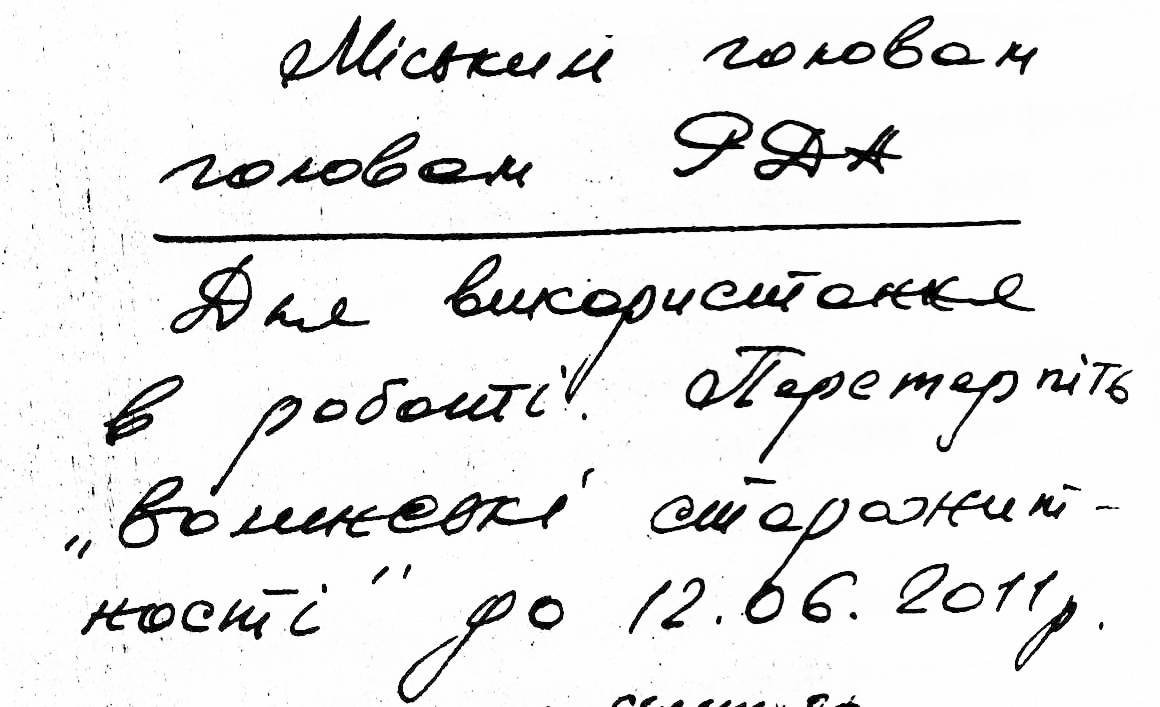 Міським головам
головам РДА
Для використання
в роботі. Перетерпіть
„волинські старожит-
ності" до 12.06.2011р.